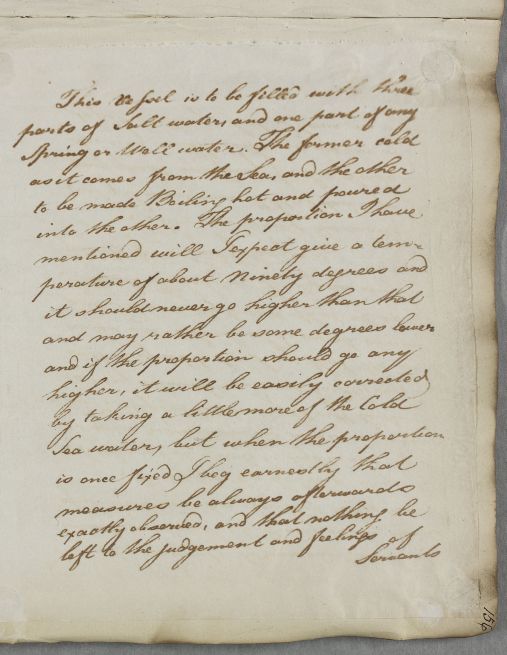 This Vessel is to be filled with three
parts of Salt water, and one part of any
Spring or Well water. The former cold
as it comes from the Sea, and the other
to be made Boiling hot and poured
into the other. The proportion I have
mentioned will I expect give a tem-
perature of about Ninety degrees and
it should never go higher than that
and may rather be some degrees lower
and if the proportion should go any
higher, it will be easily corrected
by taking a little more of the Cold
Sea water, but when the proportion
is once fixed I beg earnestly that
measures be always afterwards
exactly observed, and that nothing be
left to the judgement and feelings of
Servants